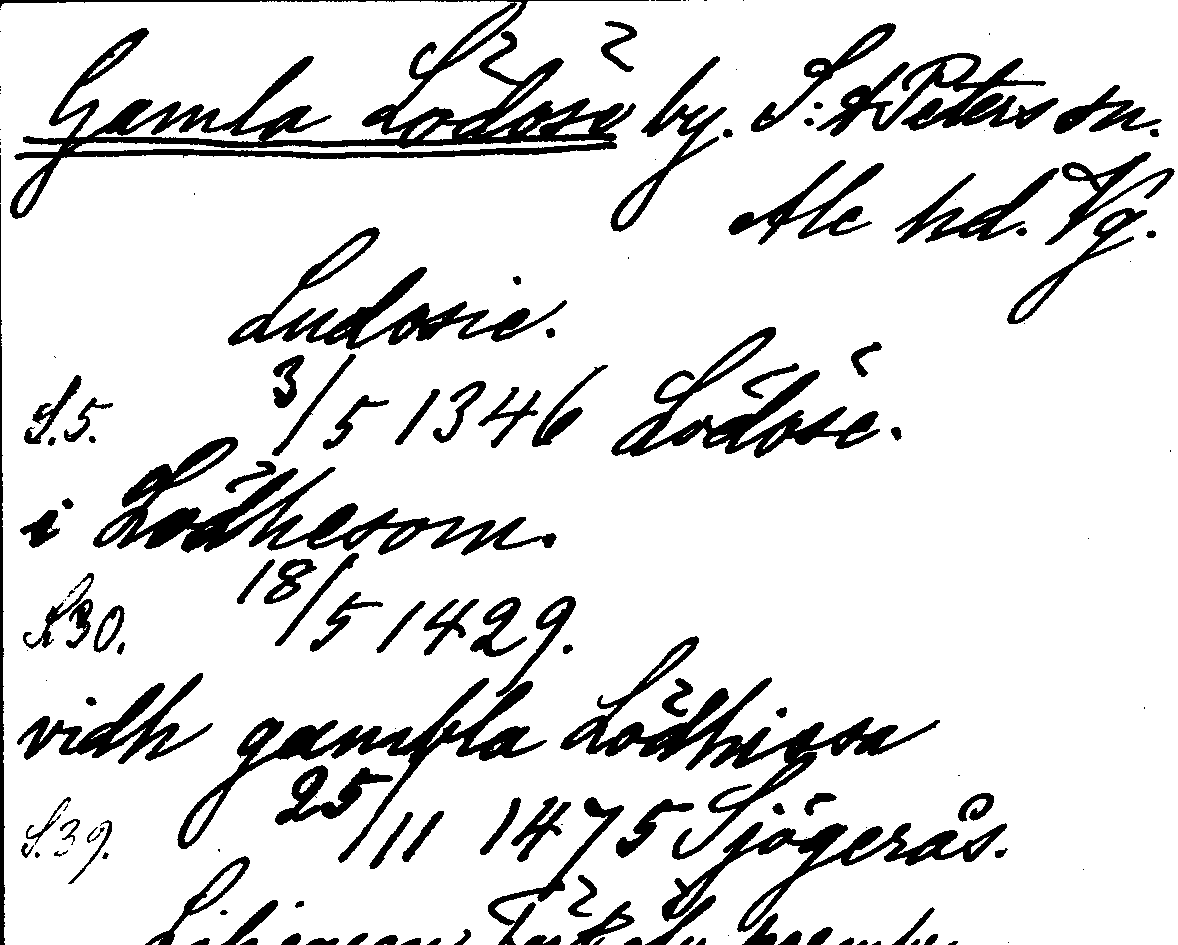 Gamla Lödöse by. S:t Peters sn.
Ale hd. Vg.
Ludosie.
S.5. 3/5 1346 Lödöse.
i Lödhesom.
S.30. 18/5 1429.
vidh gambla Lödhissa
S.39. 25/11 1475 Sjögerås.